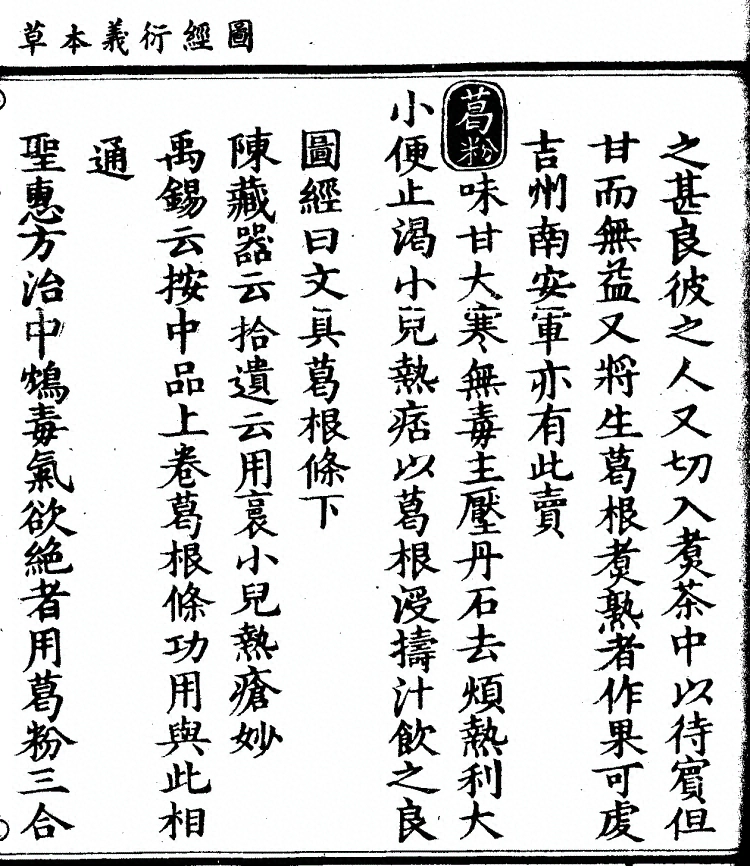 圖經衍義本草
之甚良彼之人又切入煑茶中以待賓但
甘而無益又將生葛根煑熟者作果可虔
吉州南安軍亦有此賣
葛粉味甘大寒無毒主壓丹石去煩熱利大
小便止渴小兒熱痞以葛根浸擣汁飲之良
圖經曰文具葛根條下
陳藏器云拾遺云用裛小兒熱瘡妙
禹錫云按中品上卷葛根條功用與此相
通
聖惠方治中鴆毒氣欲絶者用葛粉三合